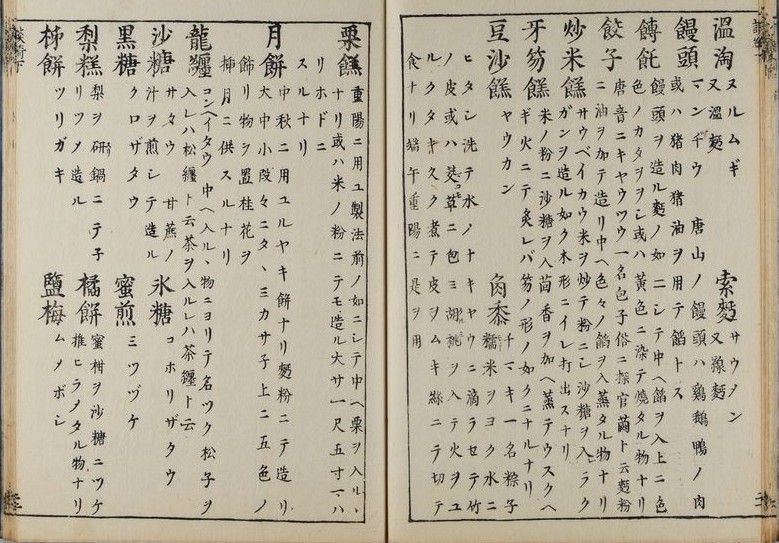 温淘 ヌルムギ
又温麪
索麪 サウメン
又線麪
饅頭 マンヂウ 唐山ノ饅頭ハ鷄鵝鴨ノ肉
或ハ猪肉猪油ヲ用テ餡トス
餺飥 饅頭ヲ造ル麪ノ如ニシテ中ヘ餡ヲ入上ニ色
色ノカタヲヲシ或ハ黄色ニ染テ燒タル物ナリ
餃子 唐音ニキヤウツウ一名包子俗ニ探官繭ト云麪粉
ニ油ヲ加テ造リ中ヘ色々ノ餡ヲ入蒸タル物ナリ
炒米餻 サウベイカウ米ヲ炒テ粉ニシ沙糖ヲ入ラク
ガンヲ造ル如ク木形ニイレ打出スナリ
牙笏餻 米ノ粉ニ沙糖ヲ入茴香ヲ加ヘ蒸テウスクヘ
ギ火ニテ炙レバ笏ノ形ノ如クニナルナリ
豆沙餻 ヤウカン
角黍 チマキ一名粽子
糯米ヲヨク水ニ
ヒタシ洗テ水ノナキヤウニ滴ラセテ竹
ノ皮或ハ茭草ニ包ミ胡桃ヲ入テ火ヲユ
ルクタキ久ク煮テ皮ヲムキ絲ニテ切テ
食ナリ端午重陽ニ是ヲ用
栗餻 重陽ニ用ユ製法前ノ如ニシテ中ヘ栗ヲ入ルヽ
ナリ或ハ米ノ粉ニテモ造ル大サ一尺五寸マハ
リホドニ
スルナリ
月餅 中秋ニ用ユルヤキ餅ナリ麪粉ニテ造リ
大中小段々ニタヽミカサ子上ニ五色ノ
飾リ物ヲ置桂花ヲ
揷月ニ供スルナリ
龍纏 コンヘイタウ中ヘ入ルヽ物ニヨリテ名ツク松子ヲ
入レハ松纏ト云茶ヲ入ルレハ茶纏ト云
沙糖 サタウ 甘蔗ノ
汁ヲ煎シテ造ル
氷糖 コホリザタウ
黒糖 クロザタウ
蜜煎 ミツヅケ
梨糕 梨ヲ研鍋ニテ子
リツメ造ル
橘餅 蜜柑ヲ沙糖ニツケ
推ヒラメタル物ナリ
柹餅 ツリガキ
鹽梅 ムメボシ